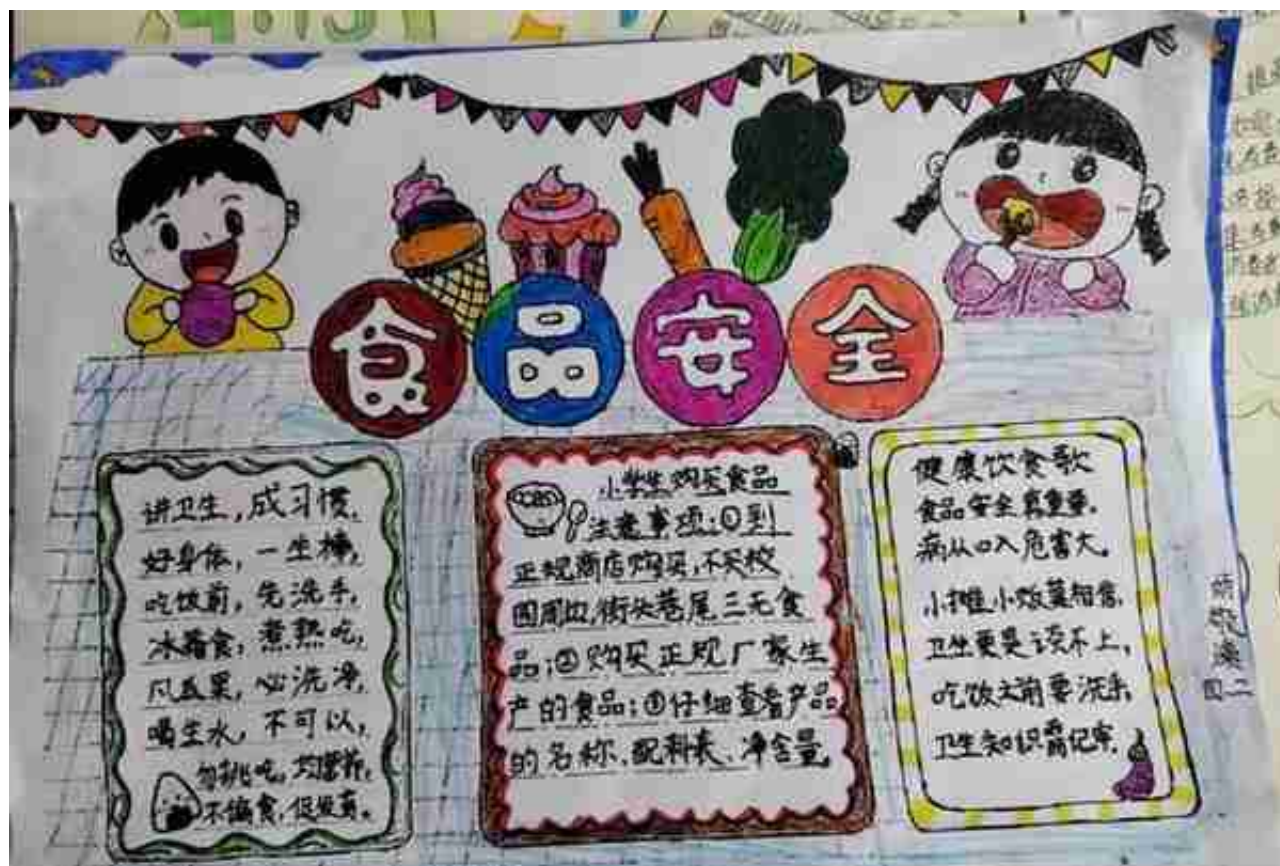 食品安全
讲卫生,成习惯,
好身体,一生棒,
吃饭前,先洗手,
冰箱食,煮熟吃,
凡瓜果,必洗净,
喝生水,不可以,
勿挑吃,均营养,
不偏食,促发育。
小学生购买食品
注意事项:①到
正规商店购买,不买校
园周边,街头巷尾三无食
品;②购买正规厂家生
产的食品;③仔细查看产品
的名称、配料表、净含量,
健康饮食歌
食品安全真重要,
病从口入危害大。
小摊小贩莫相信,
卫生更是谈不上,
吃饭之前要洗手,
卫生知识需记牢,